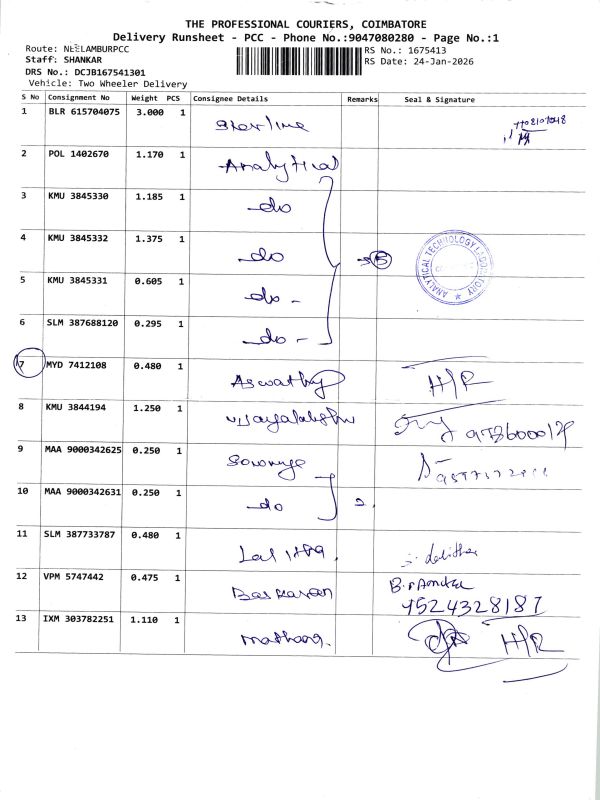 THE PROFESSIONAL COURIERS, COIMBATORE
Delivery Runsheet - PCC - Phone No.:9047080280 - Page No.:1
Route: NEELAMBURPCC
RS No.: 1675413
Staff: SHANKAR
RS Date: 24-Jan-2026
DRS No.: DCJB167541301
Vehicle: Two Wheeler Delivery
S No Consignment No Weight PCS Consignee Details Remarks Seal & Signature
1 BLR 615704075 3.000 1 Starline
2 POL 1402670 1.170 1 Analytical
3 KMU 3845330 1.185 1 do
4 KMU 3845332 1.375 1 do 5 ANALYTICAL TECHNOLOGY LABORATORY
5 KMU 3845331 0.605 1 do -
6 SLM 387688120 0.295 1 do -
7 MYD 7412108 0.480 1 Aswathy H/R
8 KMU 3844194 1.250 1
9 MAA 9000342625 0.250 1 Sowmya
10 MAA 9000342631 0.250 1 do 2.
11 SLM 387733787 0.480 1 Lalitha. Lalitha
12 VPM 5747442 0.475 1 Baskaran 9524328187
13 IXM 303782251 1.110 1 H/R